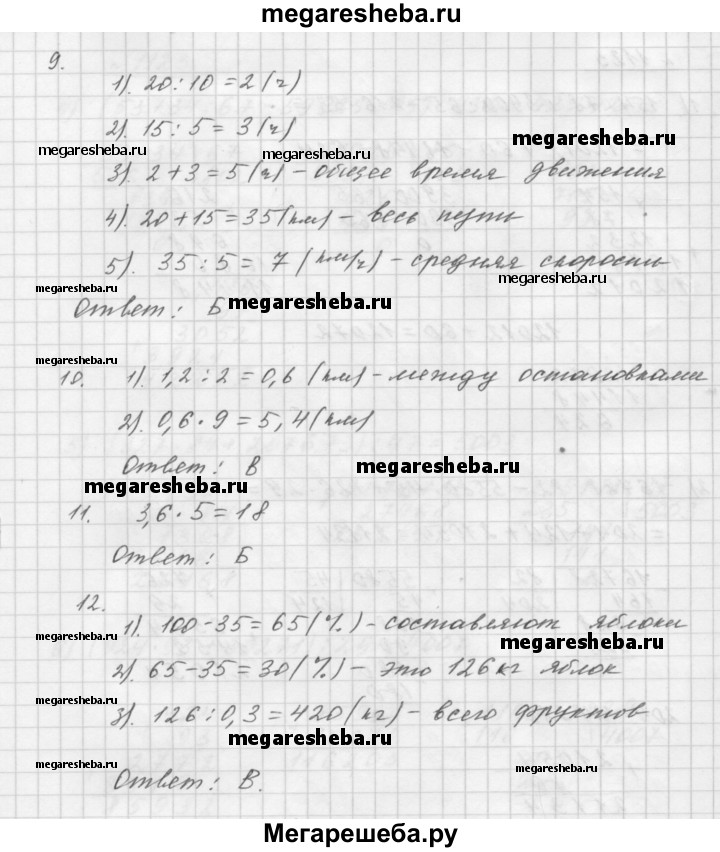 megaresheba.ru
9.
1). 20 : 10 = 2 (ч)
2). 15 : 5 = 3 (ч)
megaresheba.ru
megaresheba.ru
megaresheba.ru
3). 2 + 3 = 5 (ч) - общее время движения
4). 20 + 15 = 35 (км) - весь путь
5). 35 : 5 = 7 (км/ч) - средняя скорость
megaresheba.ru
megaresheba.ru
Ответ: Б
megaresheba.ru
megaresheba.ru
10. 1). 1,2 : 2 = 0,6 (км) - между остановками
2). 0,6 · 9 = 5,4 (км)
Ответ: В
megaresheba.ru
megaresheba.ru
11. 3,6 · 5 = 18
Ответ: Б
12.
1). 100 - 35 = 65 (%) - составляют яблоки
megaresheba.ru
megaresheba.ru
2). 65 - 35 = 30 (%) - это 126 кг яблок
3). 126 : 0,3 = 420 (кг) - всего фруктов
megaresheba.ru
megaresheba.ru
megaresheba.ru
Ответ: В.
Мегарешеба.ру